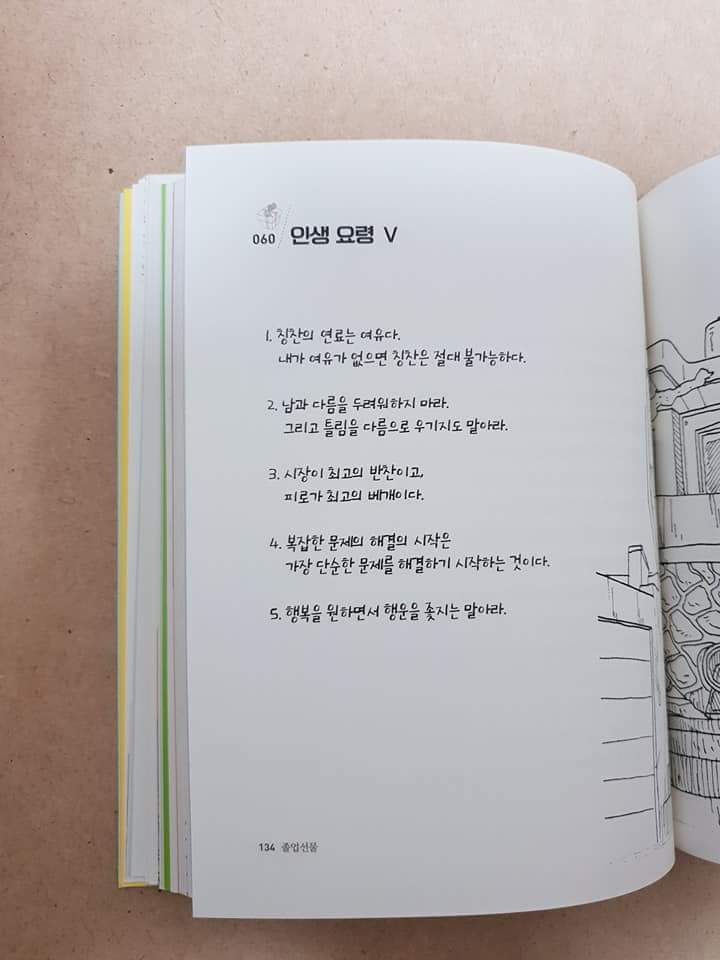 060 인생 요령 V
1. 칭찬의 연료는 여유다.
내가 여유가 없으면 칭찬은 절대 불가능하다.
2. 남과 다름을 두려워하지 마라.
그리고 틀림을 다름으로 우기지도 말아라.
3. 시장이 최고의 반찬이고,
피로가 최고의 베개이다.
4. 복잡한 문제의 해결의 시작은
가장 단순한 문제를 해결하기 시작하는 것이다.
5. 행복을 원하면서 행운을 좇지는 말아라.
134 졸업선물